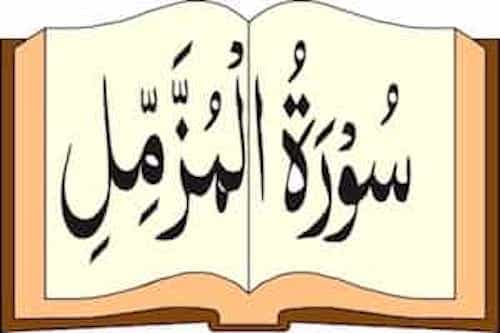 سُوْرَةُ الْمُزَّمِّلِ